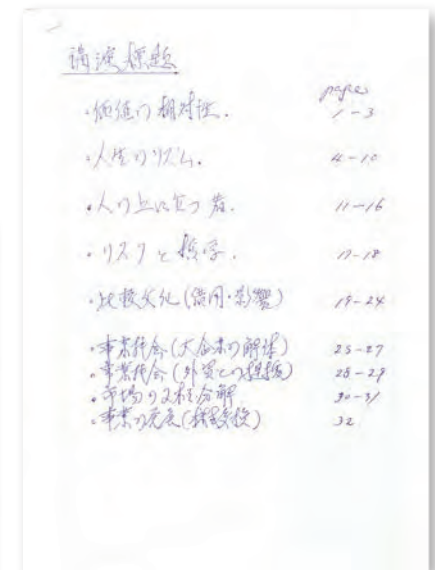 講演標題
pages
・価値の相対性. 1-3
・人生のリズム. 4-10
・人の上に立つ者. 11-16
・リスクと哲学. 17-18
・比較文化(信用・影響) 19-24
・事業機会(大企業の解体) 25-27
・事業機会(外資との提携) 28-29
・市場の 分解 30-31
・事業の発展 32